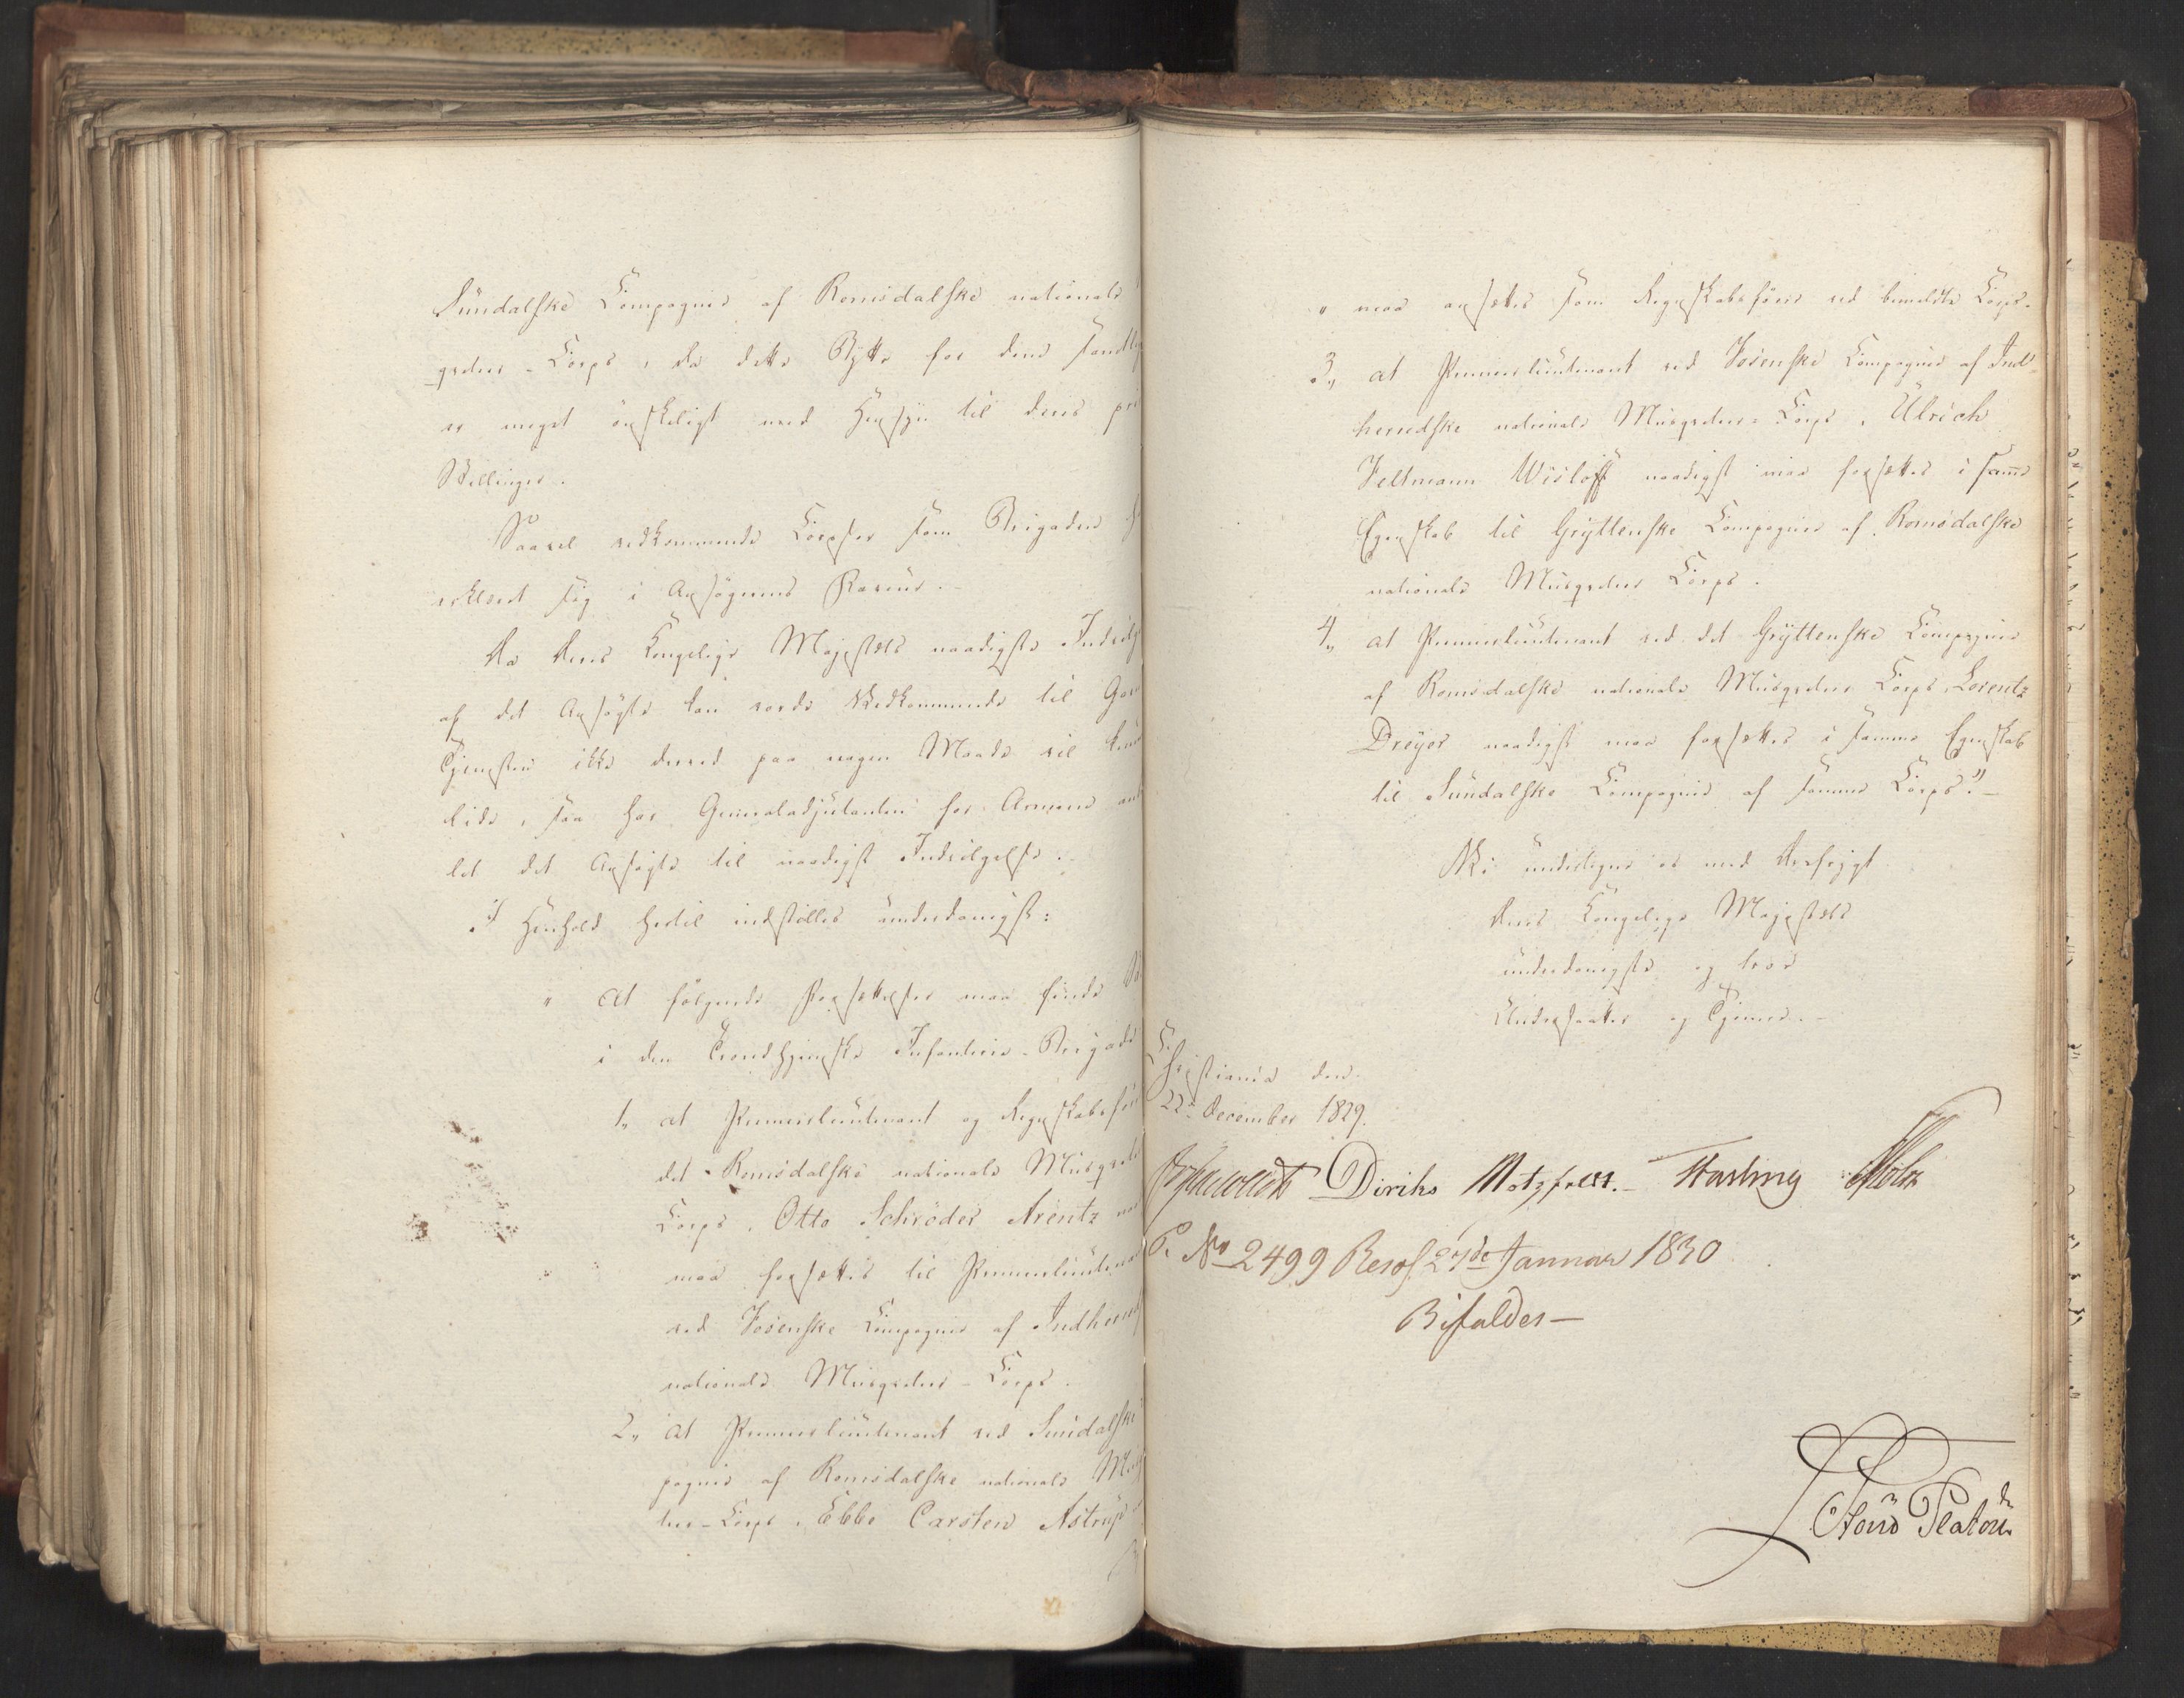 Sundalske Compagnie af Romsdalske nationale
qveteer-Corps, da dette Bytte for dem
er meget ønskeligt med Hensyn til deres
Stillinger.
Saavel vedkommende Corpser som Brigaden
erklæret sig i Ansøgerens Faveur.-
Da Deres Kongelige Majestæts naadigste
af det Ansøgte kan vorde Vedkommende til
Tjenesten ikke derved paa nogen Maade vil
lide, saa har Generaladjutanten for Armeen
let det Ansøgte til naadigst Indvilgelse.
I Henhold hertil indstilles underdanigst:
" at følgende Forsættelser maa finde
i den Trondhjemske Infanterie-Brigade
1., at Premierlieutenant og
det Romsdalske nationale
Corps, Otto Schrøder Arentz
maa forsættes til
ved Fosenske Compagnie af
nationale Musqveteer-Corps.
2., at Premierlieutenant ved Sundalske
pagnie af Romsdalske nationale
teer-Corps, Ebbe Carsten Astrup
" maa ansættes som Regnskabsfører ved bemeldte Corps.
3., at Premierlieutenant ved Fosenske Compagnie af Ind-
herredske nationale Musqveteer-Corps, Ulrich
Feltmann Wisløff naadigst maa forsættes i samme
Egenskab til Gryttenske Compagnie af Romsdalske
nationale Musqveteer Corps.
4., at Premierlieutenant ved det Gryttenske Compagnie
af Romsdalske nationale Musqveteer Corps, Lorentz
Dreyer naadigst maa forsættes i samme Egenskab
til Sundalske Compagnie af samme Corps."-
Vi undertegne os med Ærefrygt
Deres Kongelige Majestæts
underdanigste og troe
Undersaatter og Tjenere.-
Christiania den
22de December 1829.
Diriks Motzfeldt.- Fasting Holst
P. No 2499 Resol. 27de Januar 1830
Bifaldes-
Oluf Platou